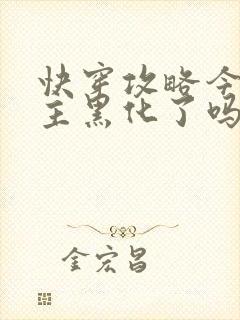 快穿攻略今
主黑化了吗
金宏昌